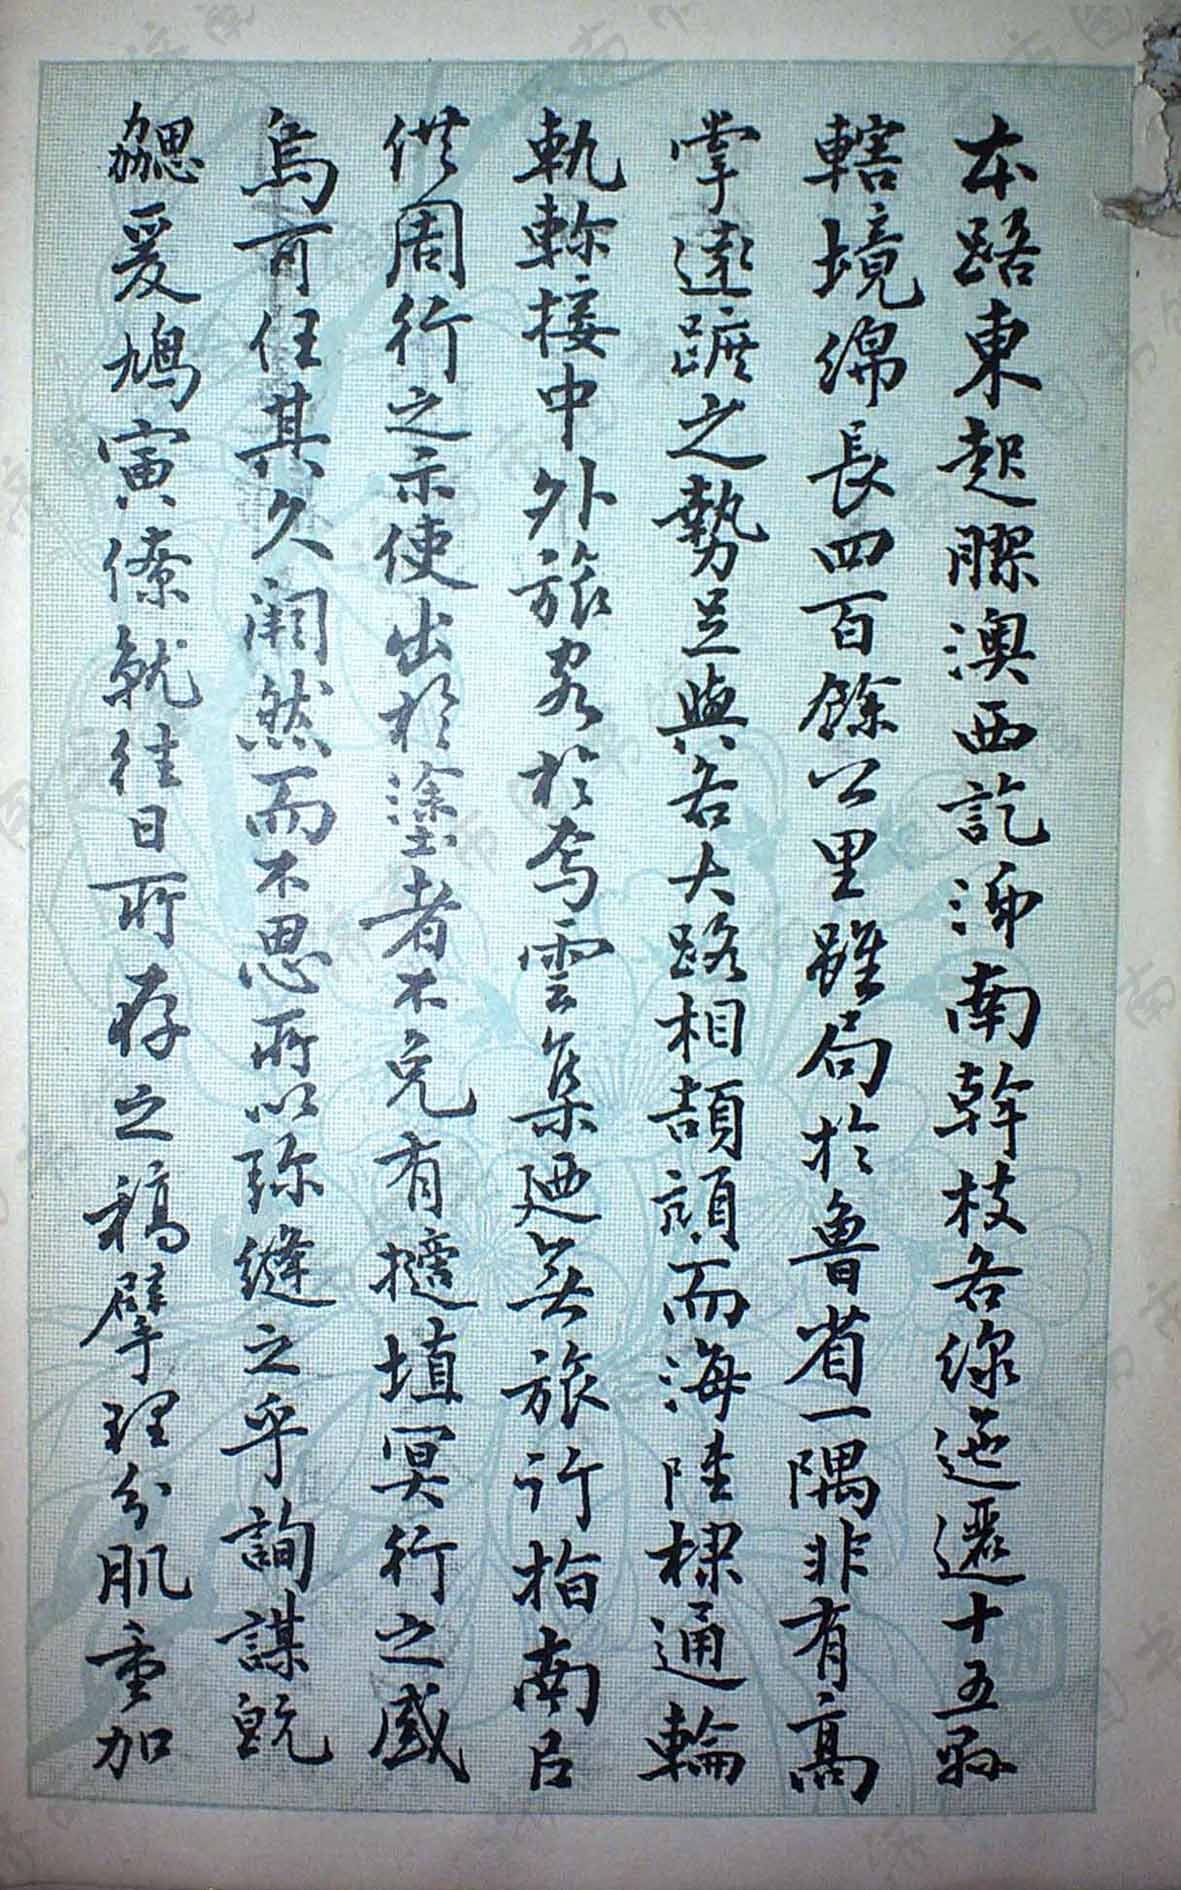 本路東起膠澳西訖泲南幹枝各線迤邐十五縣
轄境綿長四百餘公里雖局於魯省一隅非有高
掌遠蹠之勢足與各大路相頡頏而海陸棣通輪
軌軫接中外旅客於焉雲集迺無旅行指南以
供周行之示使出於塗者不免有擿埴冥行之感
烏可任其久闕然而不思所以弥縫之乎詢謀既
勰爰鳩寅僚就往日所存之稿擘理分肌重加